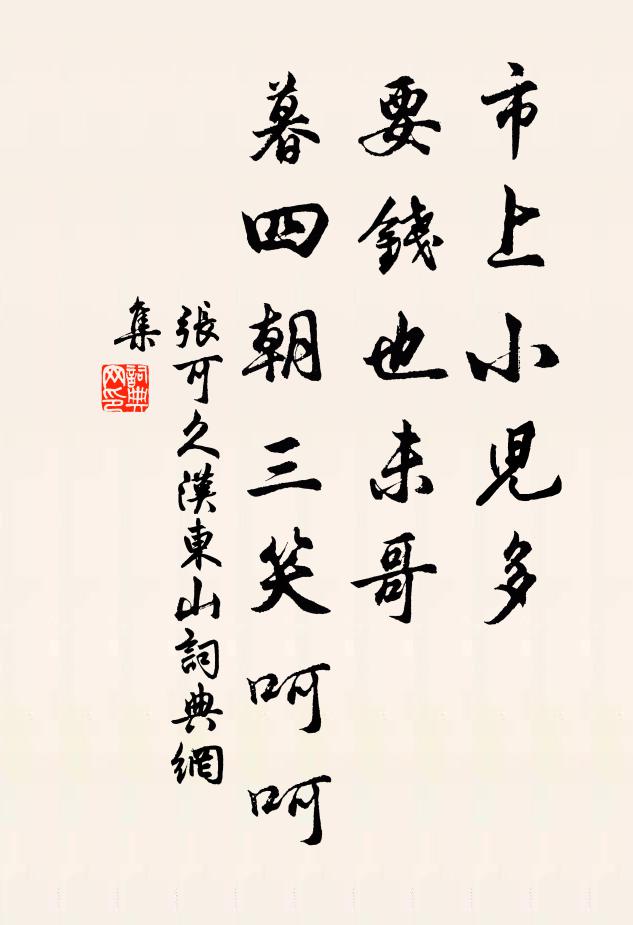 市上小兒多
要錢也未哥
暮四朝三笑呵呵
張可久漢東山詞典網
集
詞典網印